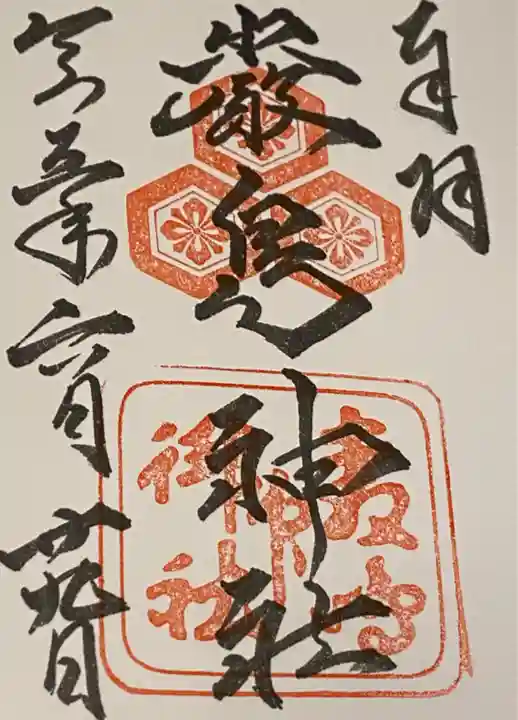 奉拝
嚴島神社
令和五年六月廿九日
嚴島
神社